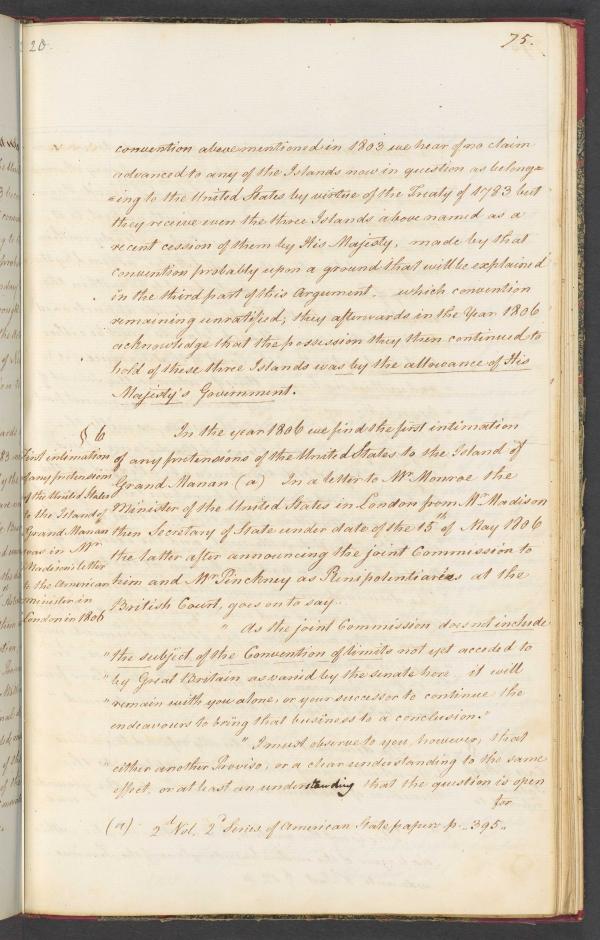 20
75.
convention above mentioned in 1803 we hear of no claim
advanced to any of the Islands now in question as belong=
=ing to the United States by virtue of the Treaty of 1783 but
they receive even the three Islands above named as a
recent cession of them by His Majesty, made by that
convention probably upon a ground that will be explained
in the third part of this Argument. which convention
remaining unratified, they afterwards in the Year 1806
acknowledge that the possession they then continued to
hold of these three Islands was by the allowance of His
Majesty's Government.
§ 6
First intimation
of any pretensions
of the United States
to the Island of
Grand Manan
was in Mr
Madison's letter
to the American
minister in
London in 1806
In the year 1806 we find the first intimation
of any pretensions of the United States to the Island of
Grand Manan (a) In a letter to Mr Monroe the
Minister of the United States in London from Mr Madison
then Secretary of State under date of the 15th of May 1806
the latter after announcing the joint Commission to
him and Mr Pinckney as Plenipotentiaries at the
British Court, goes on to say..
" As the joint Commission does not include
" the subject of the Convention of limits not yet acceded to
" by Great Britain as varied by the senate here it will
" remain with you alone, or your successor to continue the
endeavours to bring that business to a conclusion."
" I must observe to you, however, that
" either another Proviso, or a clear understanding to the same
effect, or at least an understanding that the question is open
for
(a) 2d Vol. 2d Series of American State papers p. 395.